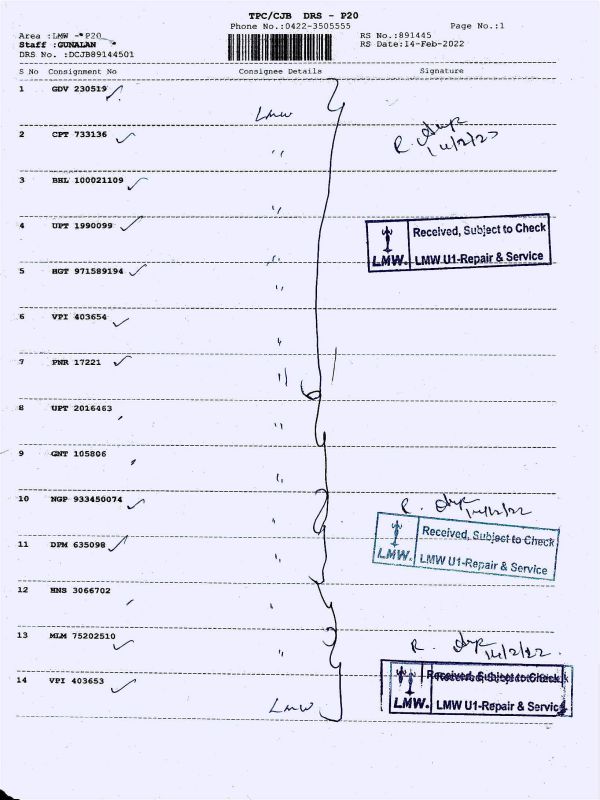 TPC/CJB DRS - P20
Phone No.:0422-3505555 Page No.:1
Area :LMW - P20 RS No.:891445
Staff :GUNALAN RS Date:14-Feb-2022
DRS No. :DCJB89144501
S No Consignment No Consignee Details Signature
1 GDV 230519
LMW
2 CPT 733136 "
R.
14/2/22
3 BHL 100021109 "
4 UPT 1990099 "
Received, Subject to Check
LMW. LMW U1-Repair & Service
5 HGT 971589194 "
6 VPI 403654 "
7 PNR 17221 "
8 UPT 2016463 "
9 GNT 105806 "
10 NGP 933450074 "
R. 14/2/22
Received, Subject to Check
LMW. LMW U1-Repair & Service
11 DPM 635098 "
12 HNS 3066702 "
13 MLM 75202510 "
R. 14/2/22.
14 VPI 403653
Received, Subject to Check
LMW. LMW U1-Repair & Service
LMW